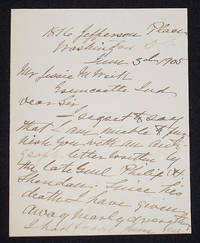 Jefferson Place
Washington
June 3rd, 1905
Mr Jessie M. Weik
Greencastle, Ind
Dear Sir
I regret to say
that I am unable to fur-
nish you with an auto-
graph letter written by
the late Genl Philip H.
Sheridan. Since his
death I have given
away nearly everything
I had